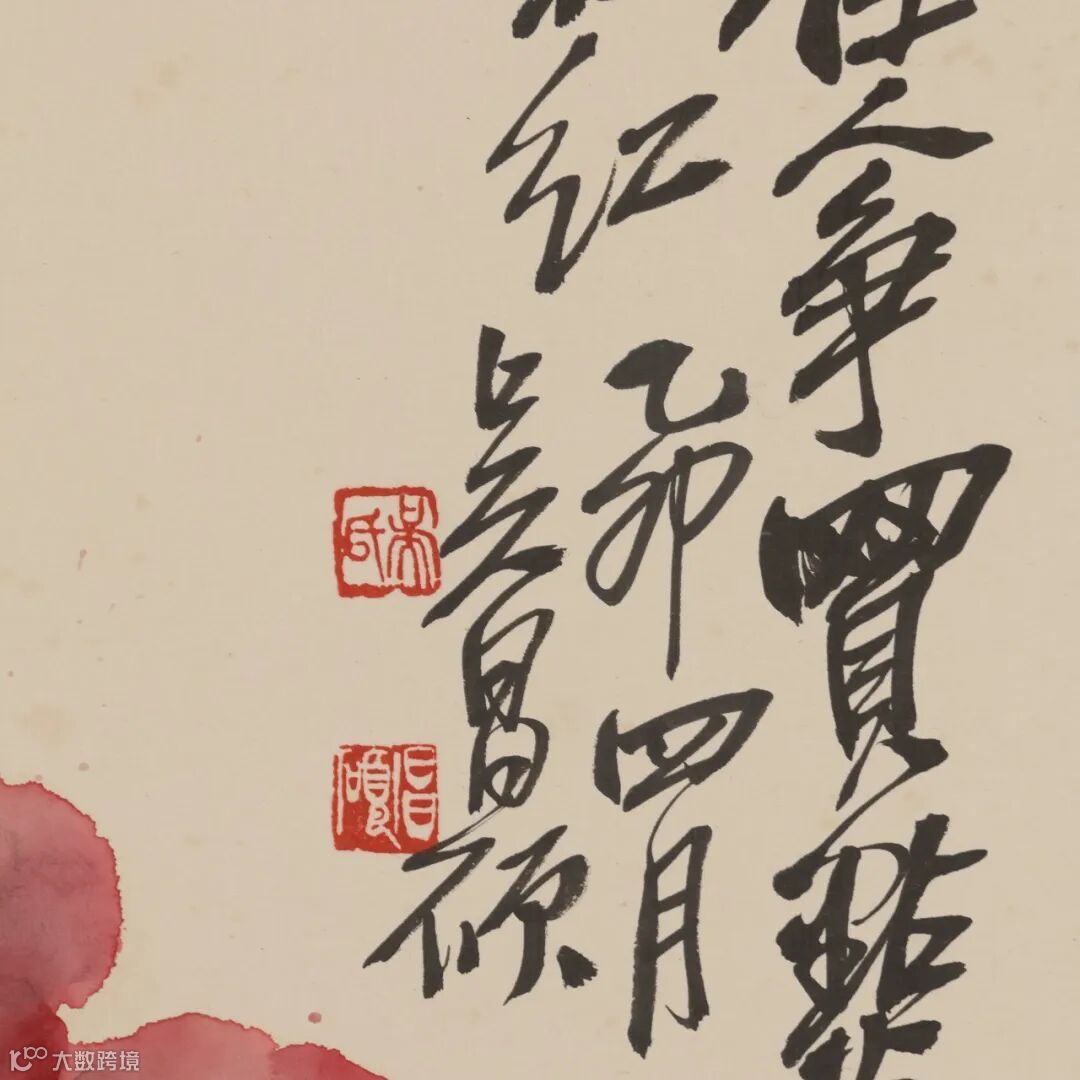 人爭買點
紅 乙卯四月
吳昌碩
昌碩
大数跨境